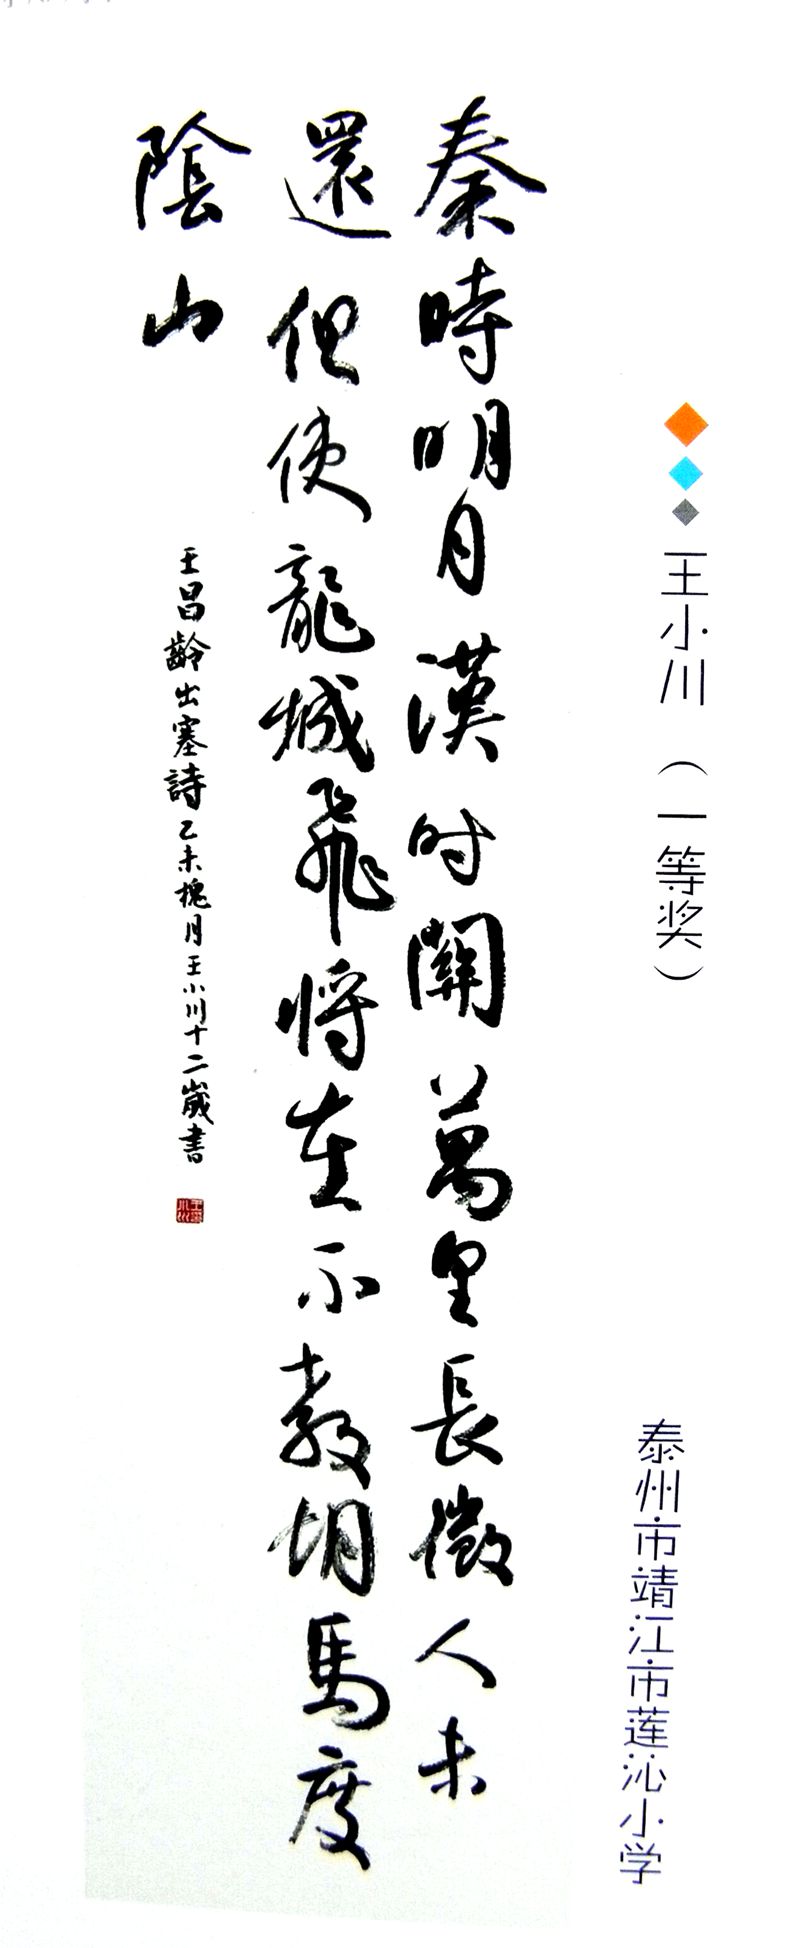 王小川（一等奖）
泰州市靖江市莲沁小学
秦時明月漢时關萬里長徵人未
還但使龍城飛将在不教胡馬度
陰山
王昌齡出塞詩乙未槐月王小川十二歲書